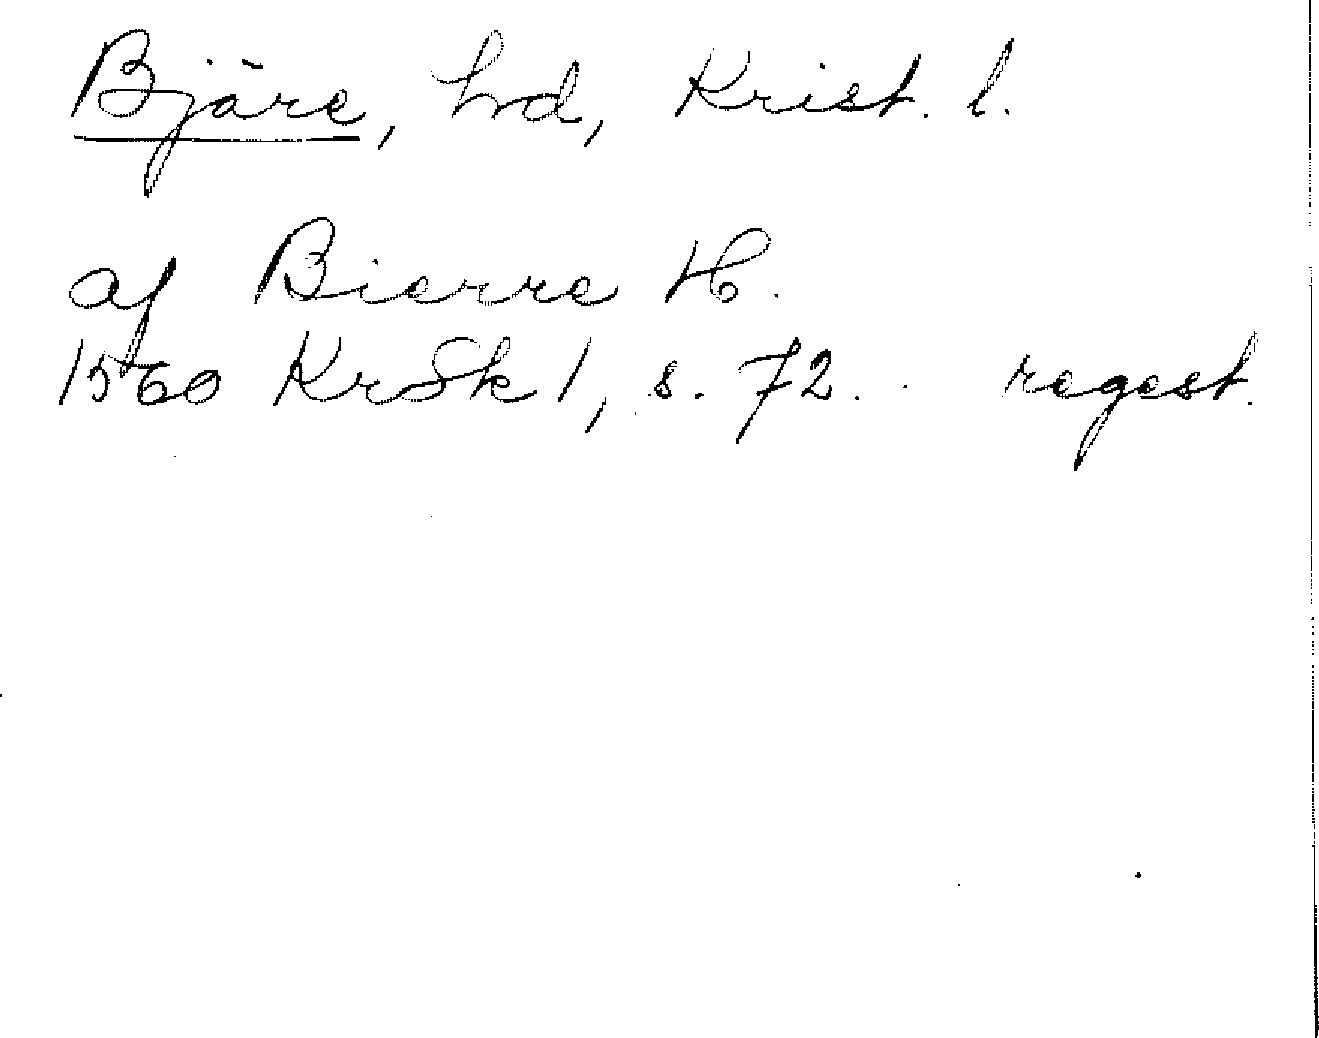 Bjäre, hd, Krist. l.
af Bierre H.
1560 KrSk 1, s. 72. regest.